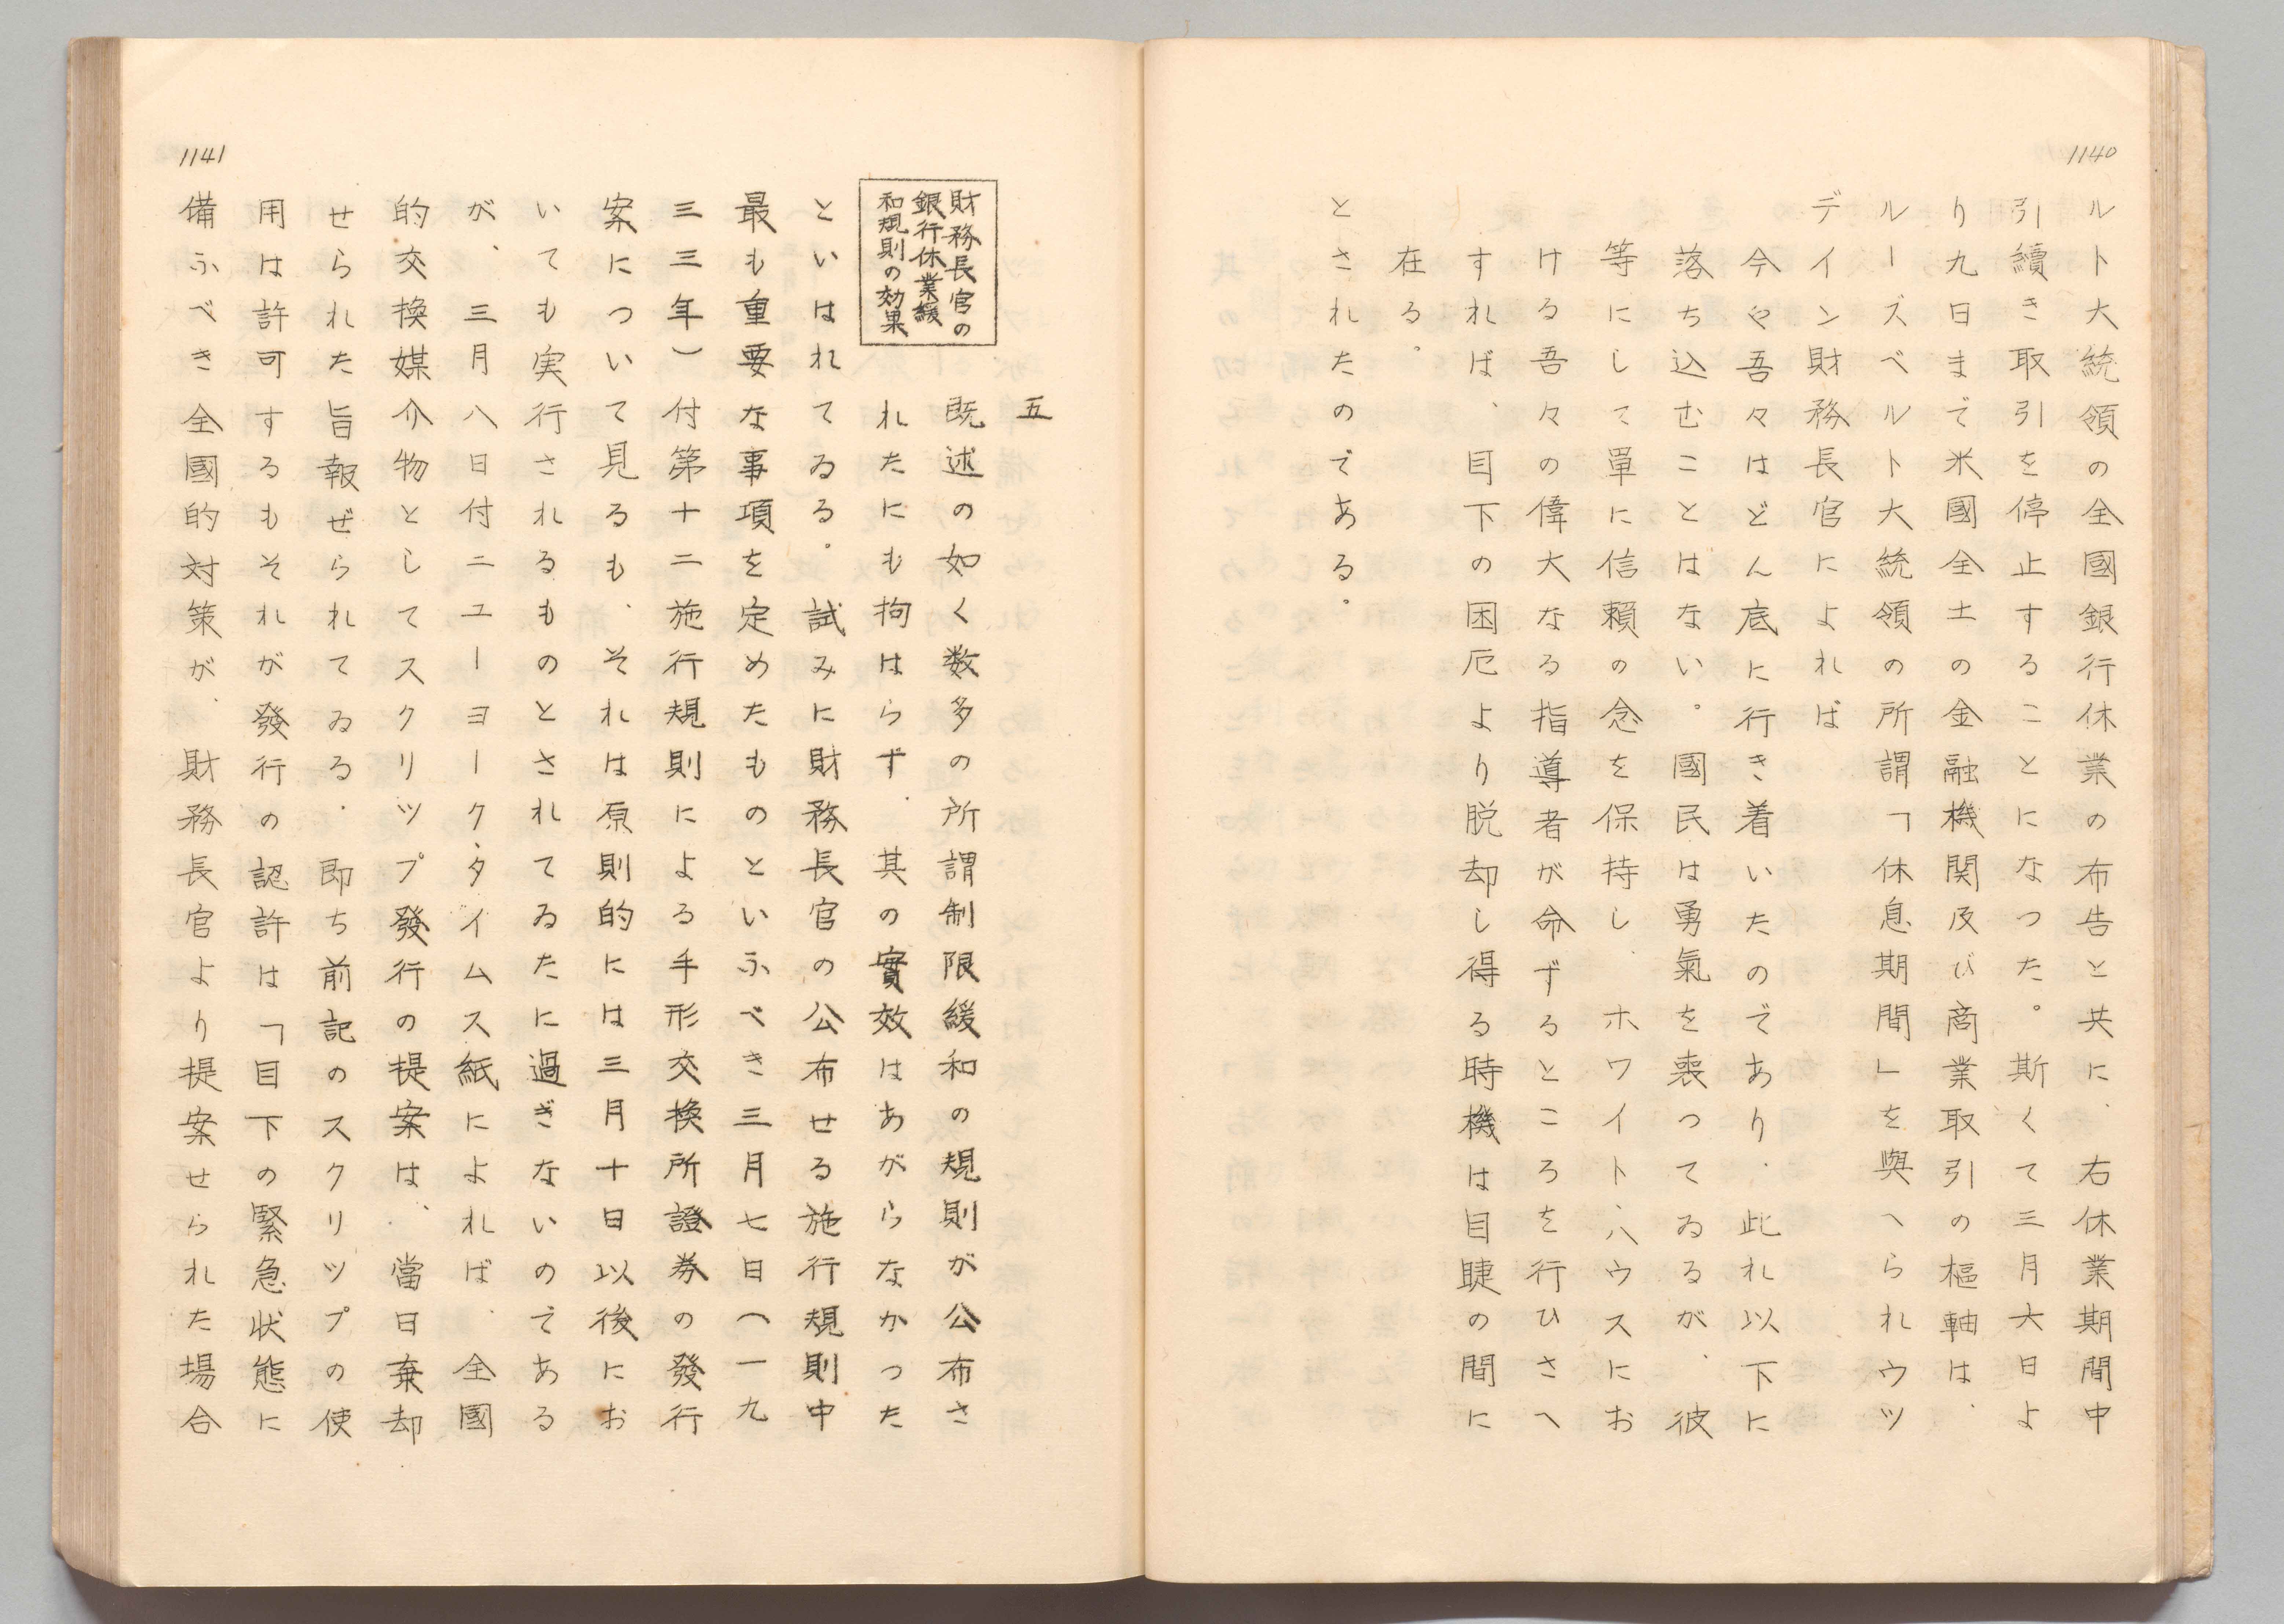 1140
ルト大統領の全國銀行休業の布告と共に、右休業期間中
引續き取引を停止することになつた。斯くて三月大日よ
り九日まで米國全土の金融機関及び商業取引の樞軸は、
ルーズベルト大統領の所謂「休息期間」を與へられウツ
デイン財務長官によれば
今や吾々はどん底に行き着いたのであり、此れ以下に
落ち込むことはない。國民は勇氣を喪つてゐるが、彼
等にして單に信賴の念を保持し、ホワイト、ハウスにお
ける吾々の偉大なる指導者が命ずるところを行ひさへ
すれば、目下の困厄より脱却し得る時機は目睫の間に
在る。
とされたのである。
五
財務長官の
銀行休業緩
和規則の効果
既述の如く数多の所謂制限緩和の規則が公布さ
れたにも拘はらず、其の實效はあがらなかつた
といはれてゐる。試みに財務長官の公布せる施行規則中
最も重要な事項を定めたものといふべき三月七日（一九
三三年）付第十二施行規則による手形交換所證券の發行
案について見るも、それは原則的には三月十日以後にお
いても実行されるものとされてゐたに過ぎないのである
が、三月八日付ニユーヨーク、タイムス紙によれば、全國
的交換媒介物としてスクリツプ發行の提案は、當日棄却
せられた旨報ぜられてゐる、即ち前記のスクリツプの使
用は許可するもそれが發行の認許は「目下の緊急状態に
備ふべき全國的対策が、財務長官より提案せられた場合
1141